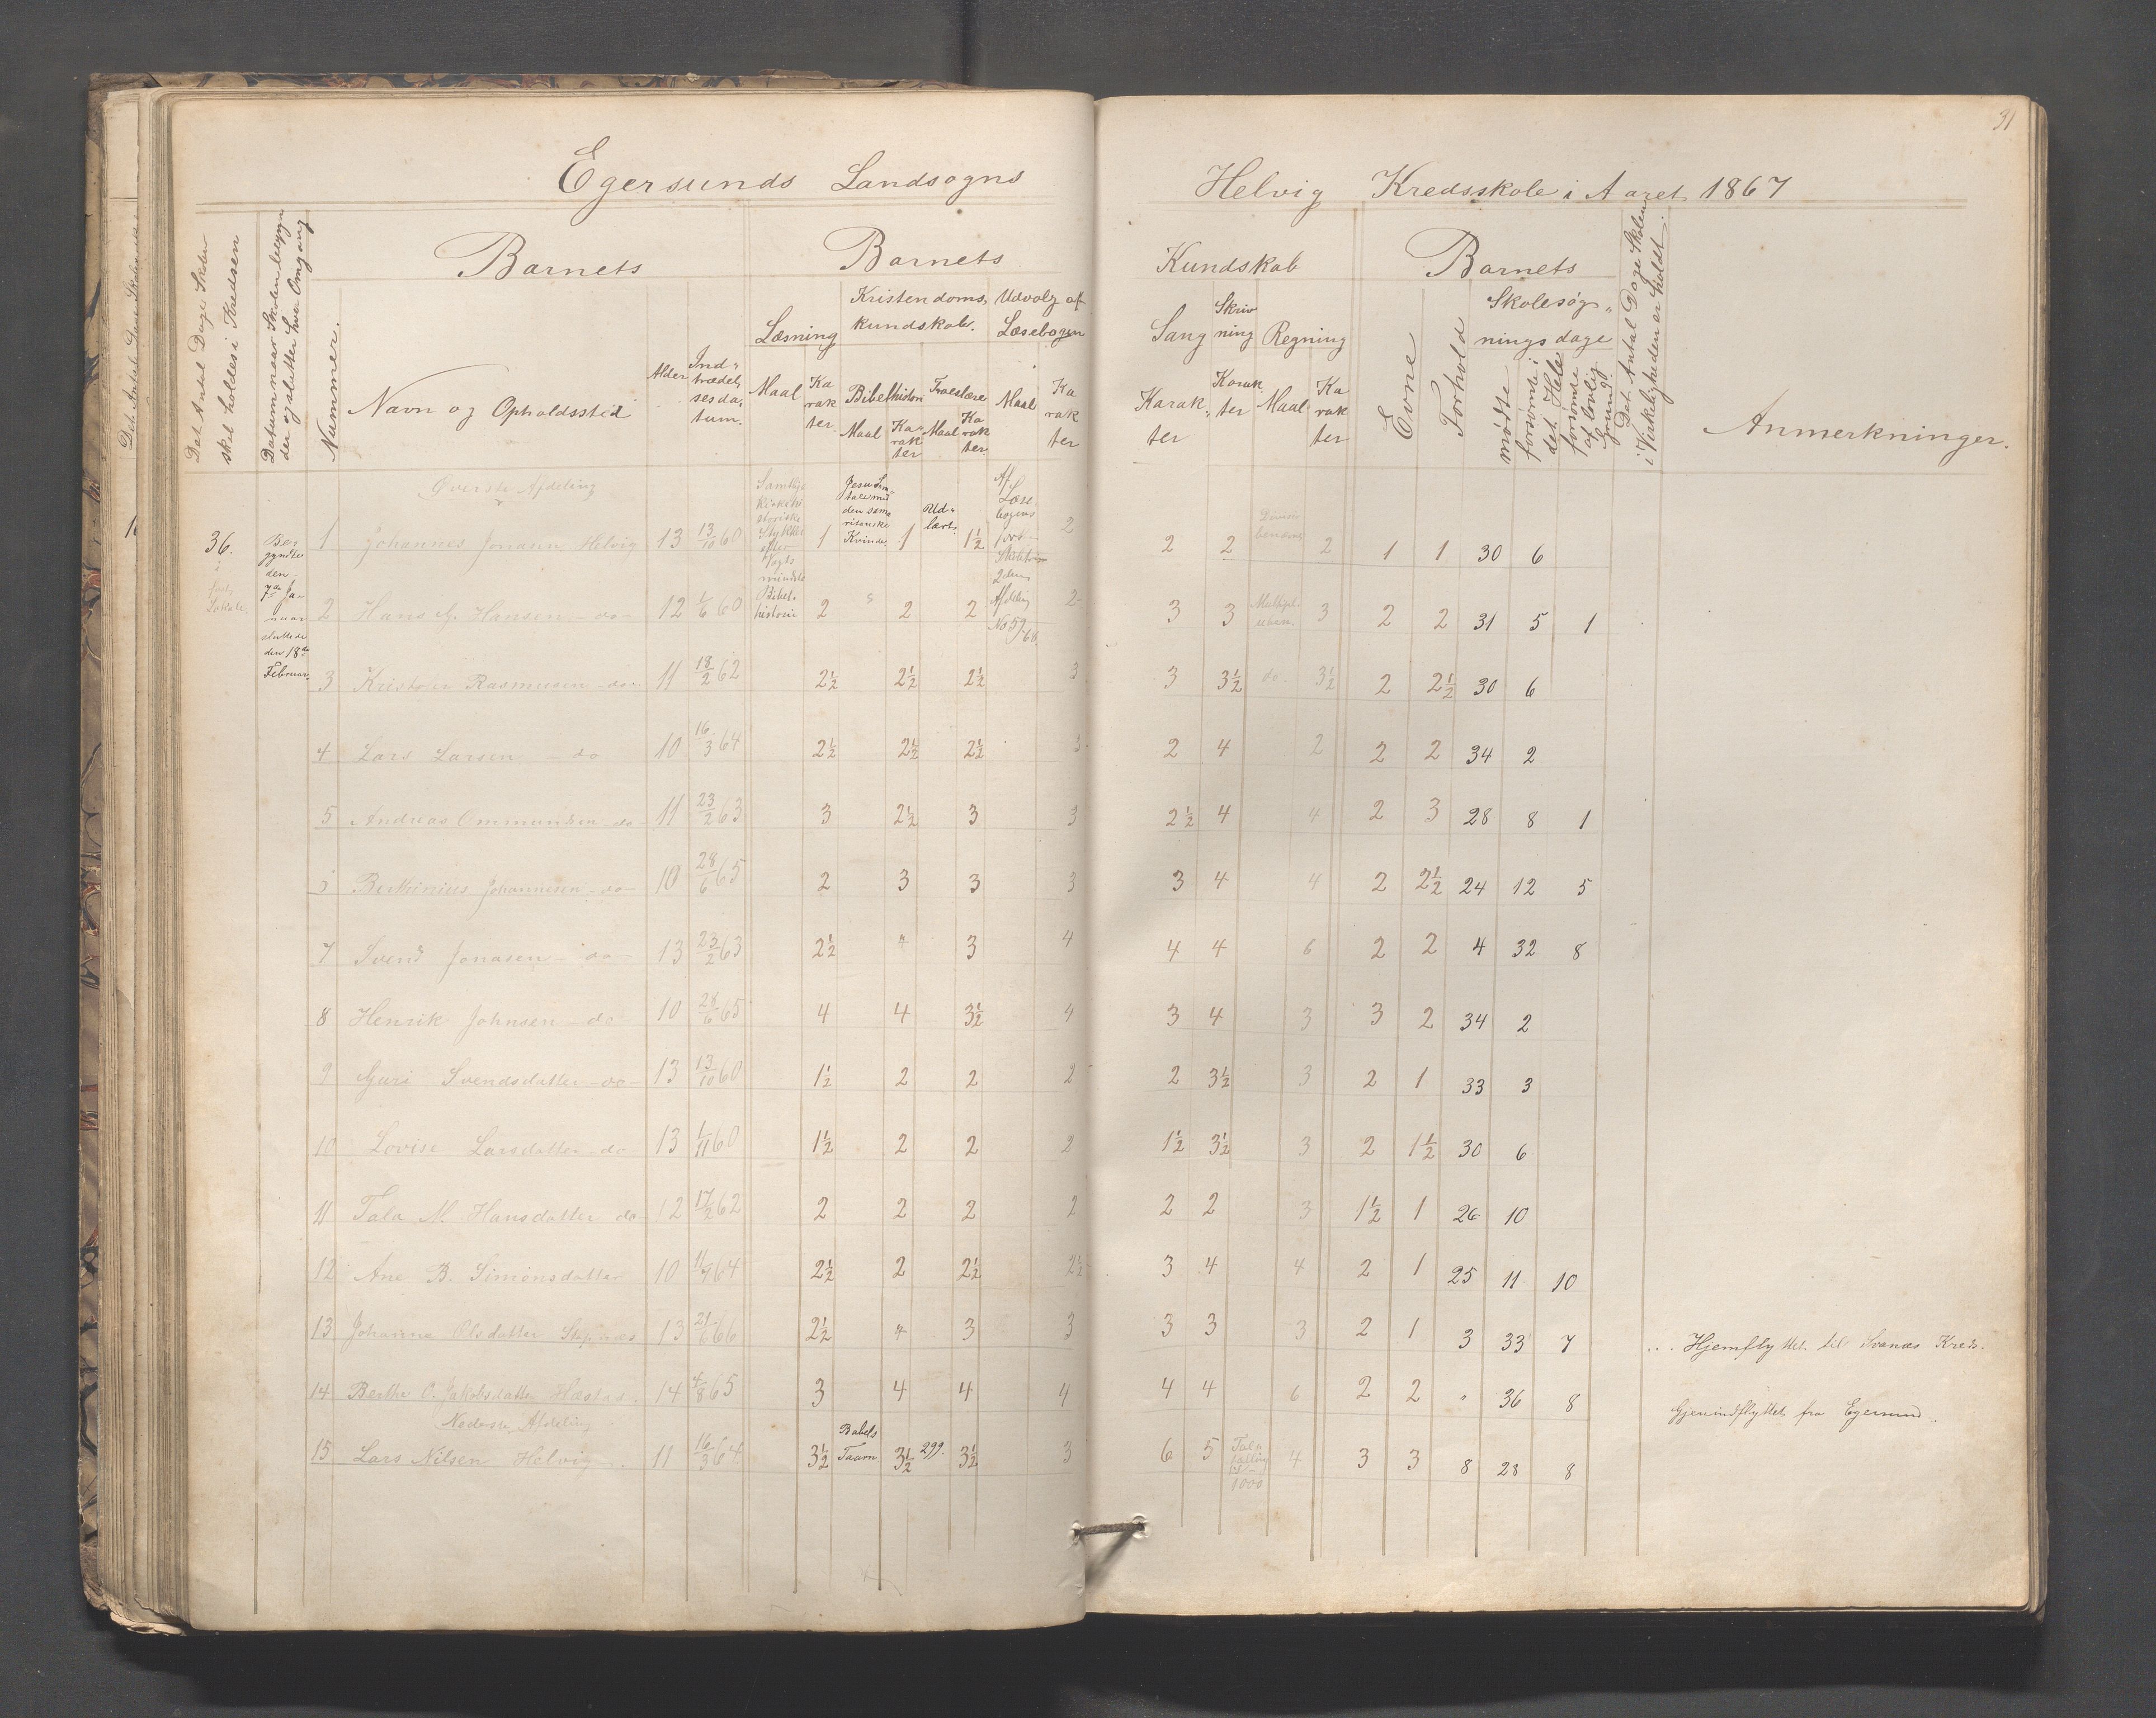 31
Egersunds Landsogns Helvig Kredsskole i Aaret 1867
Det Antal Dage Skolen skal holdes i Kredsen
Datum naar Skolen begynder og slutter hver Omgang
Nummer.
Barnets
Navn og Opholdssted
Alder
Indtrædelsesdatum.
Barnets Kundskab
Læsning
Maal
Karakter.
Kristendomskundskab.
Bibelhistori
Maal
Karakter
Troeslære
Maal
Karakter
Udvalg af Læsebogen
Maal
Karakter
Sang
Karakter
Skrivning
Karakter
Regning
Maal
Karakter
Barnets
Evne
Forhold
Skolesøgningsdage
mødte
forsømte i det Hele
forsømte af lovlig Grund
Det Antal Dage Skolen i Virkeligheden er holdt.
Anmerkninger.
Øverste Afdeling
36. i Lokale
Begyndte den 7de Januar sluttede den 18de Februar
Bibelhistorie
Jesu Samtale med den samaritanske Kvinde.
Udlært.
Af Læsebogens 2den Afdeling No 59-68.
1 Johannes Jonasen Helvig 13 13/10 60 1 1 1½ 2 2 2 2 1 1 30 6
2 Hans Hansen - do - 12 1/6 60 2 2 2 2 3 3 3 2 2 31 5 1
3 Rasmusen - do - 11 18/2 62 2½ 2½ 2½ 3 3 3½ do. 3½ 2 2½ 30 6
4 Lars Larsen - do 10 16/3 64 2½ 2½ 2½ 3 2 4 2 2 2 34 2
5 Andreas Ommundsen do 11 23/2 63 3 2½ 3 3 2½ 4 4 2 3 28 8 1
Berthinius Johannesen - do - 10 28/6 65 2 3 3 3 3 4 4 2 2½ 24 12 5
7 Svend Jonasen - do - 13 23/2 63 2½ 4 3 4 4 4 6 2 2 4 32 8
8 Henrik Johnsen - do 10 28/6 65 4 4 3½ 4 3 4 3 3 2 34 2
9 Guri Svendsdatter - do - 13 13/10 60 1½ 2 2 2 2 3½ 3 2 1 33 3
10 Lovise Larsdatter - do - 13 1/11 60 1½ 2 2 2 1½ 3½ 3 2 1½ 30 6
11 Tala M. Hansdatter do 12 17/2 62 2 2 2 2 2 2 3 1½ 1 26 10
12 Ane B. Simonsdatter 10 11/9 64 2½ 2 2½ 2½ 3 4 4 2 1 25 11 10
13 Johanna Olsdatter 13 21/6 66 2½ 4 3 3 3 3 3 2 1 3 33 7 Hjemflyttet til Svanæs Kreds.
14 Berthe Jakobsdatter 14 4/8 65 3 4 4 4 4 4 6 2 2 " 36 8 Gjenindflyttet fra Egersund.
Nederste Afdeling
15 Lars Nilsen Helvig 11 16/3 64 3½ Babels Taarn 3½ 299. 3½ 3 6 5 1000 4 3 3 8 28 8